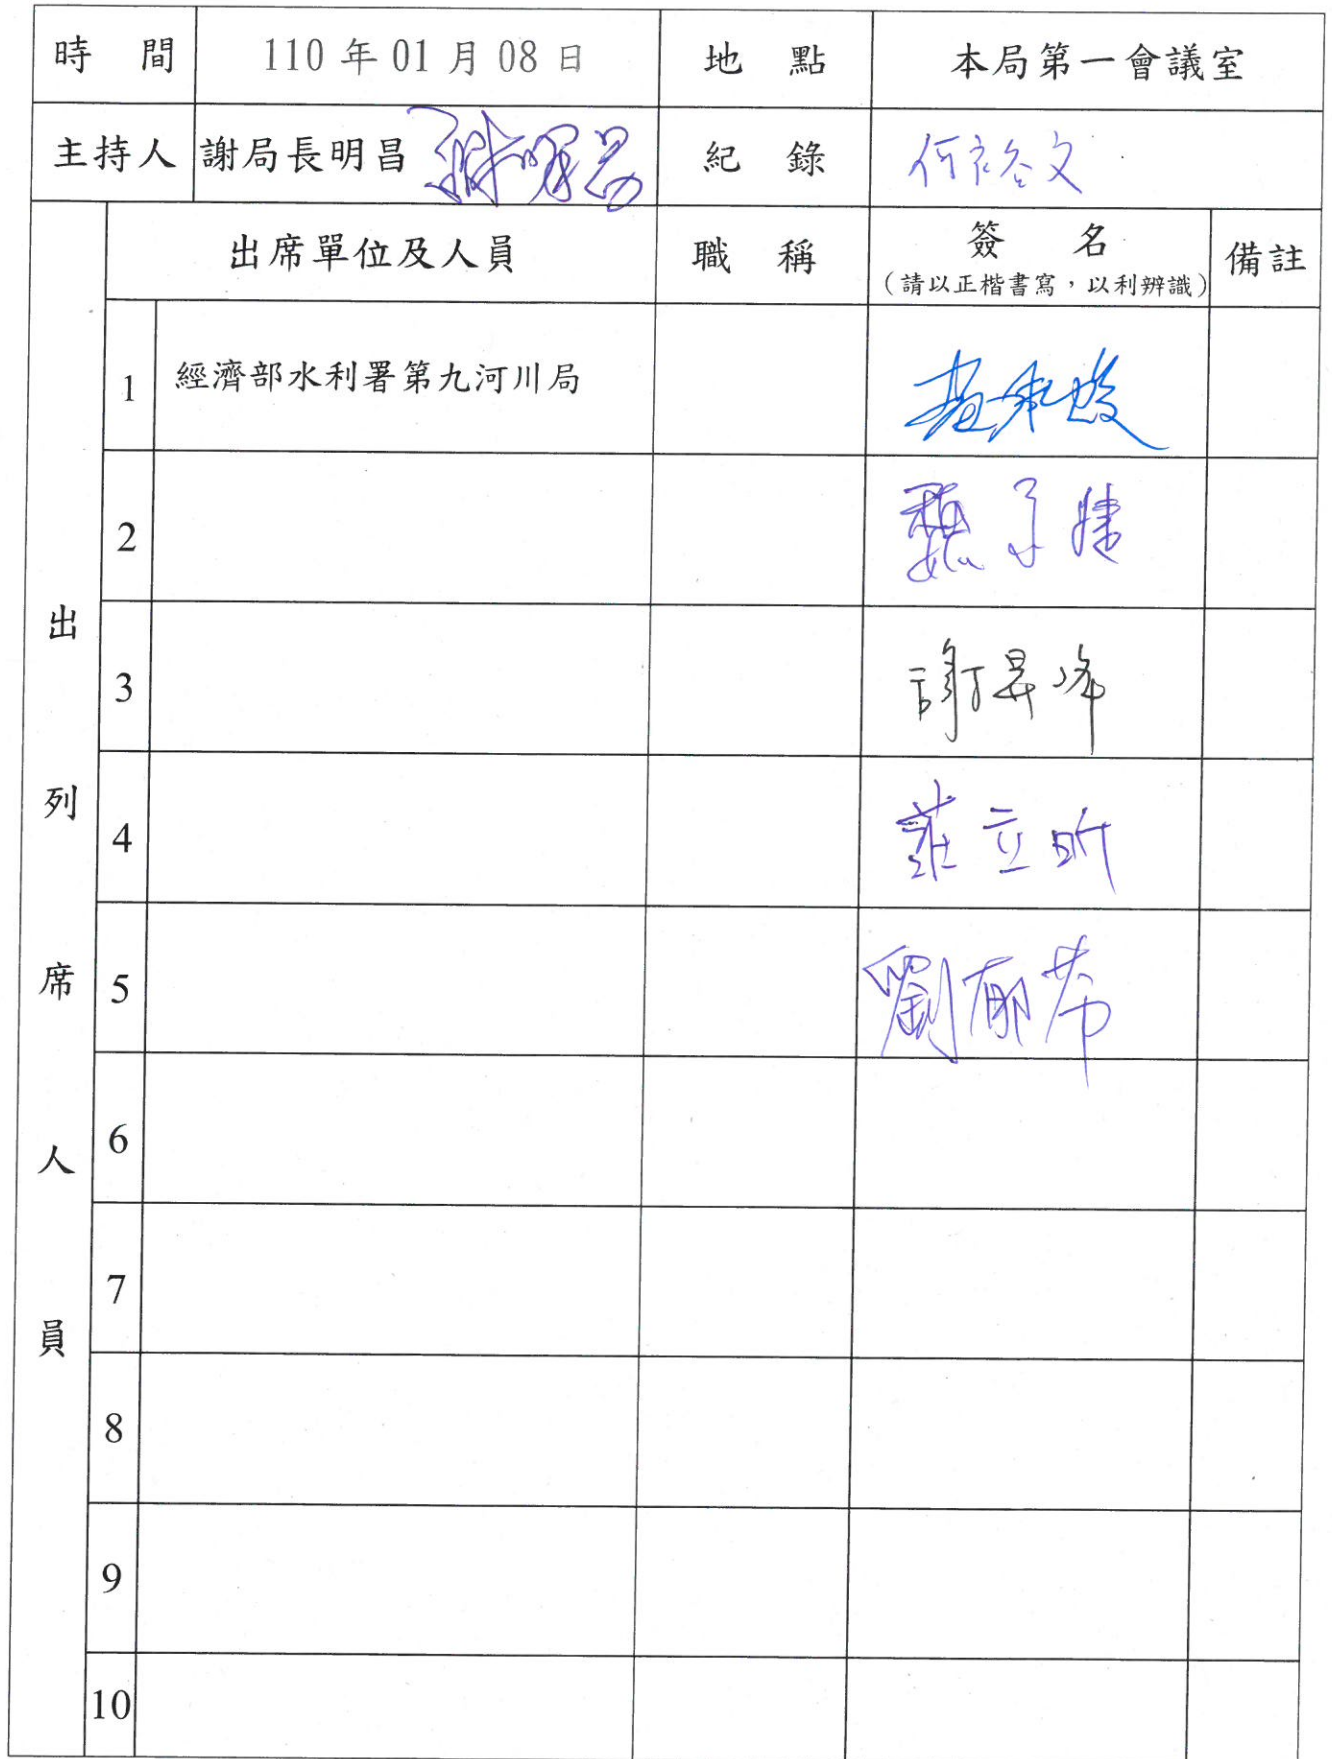 時 間 110 年 01 月 08 日 地 點 本局第一會議室
主持人 謝局長明昌 謝明昌 紀 錄 何裕文
出席單位及人員 職 稱 簽 名 備註
（請以正楷書寫，以利辨識）
出列席人員
1 經濟部水利署第九河川局
2 魏子婕
3 謝昇峰
4 莊立昕
5 劉郁芾
6
7
8
9
10